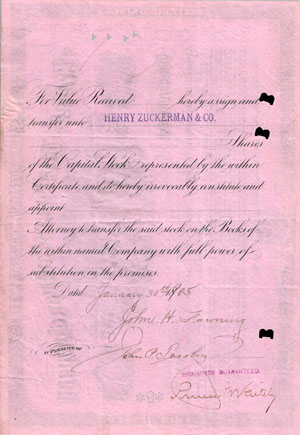 For Value Received hereby assign and
transfer unto HENRY ZUCKERMAN & CO.
Shares
of the Capital Stock represented by the within
Certificate and do hereby irrevocably constitute and
appoint
Attorney to transfer the said stock on the Books of
the within named Company with full power of
substitution in the premises.
Dated January 30th 1905
John H. Flanning
IN PRESENCE OF
John C.
SIGNATURE GUARANTEED.